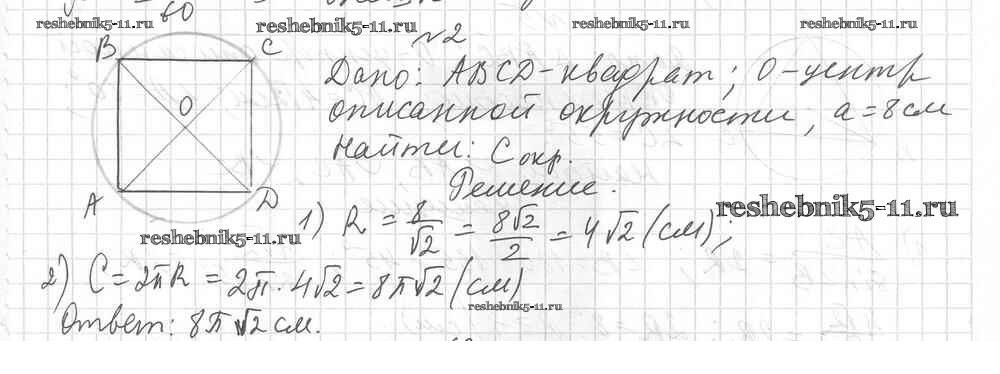 60
reshebnik5-11.ru reshebnik5-11.ru reshebnik5-11.ru reshebnik5-11.ru
N2
B C
O
A D
Дано: ABCD - квадрат; O - центр
описанной окружности, a = 8 см
Найти: C окр.
Решение.
reshebnik5-11.ru
reshebnik5-11.ru
1) R = 8/√2 = 8√2/2 = 4√2 (см);
2) C = 2πR = 2π · 4√2 = 8π√2 (см)
reshebnik5-11.ru
Ответ: 8π√2 см.